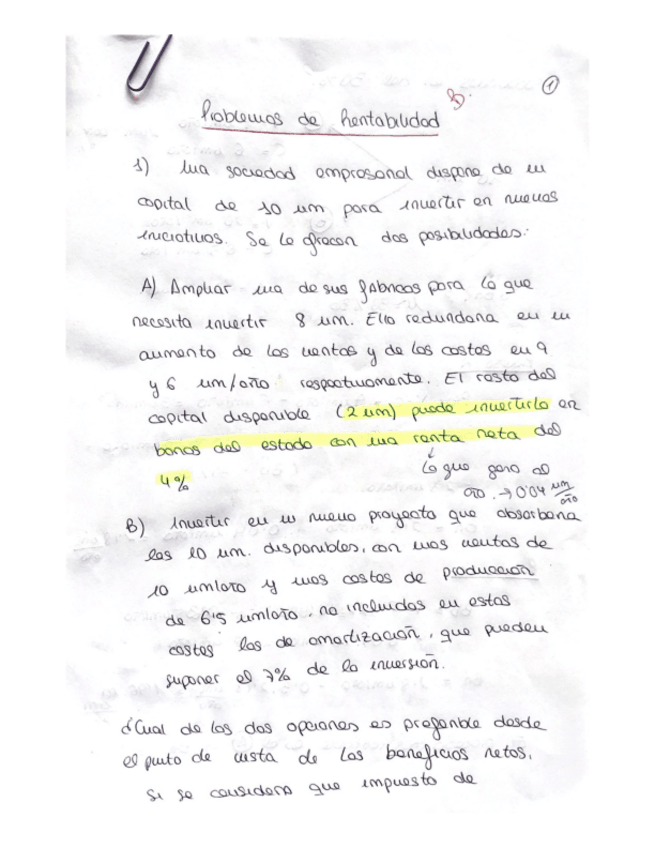 ①
Problemas de Rentabilidad
1) Una sociedad empresarial dispone de un
capital de 10 um para invertir en nuevas
iniciativas. Se le ofrecen dos posibilidades:
A) Ampliar una de sus fábricas para lo que
necesita invertir 8 um. Ello redundaria en un
aumento de las ventas y de los costes en 9
y 6 um/año respectivamente. El resto del
capital disponible (2 um) puede invertirlo en
bonos del estado con una renta neta del
4%
↓
lo que gana al
año. → 0'04 um/año
B) Invertir en un nuevo proyecto que absorberia
las 10 um. disponibles, con unas ventas de
10 um/año y unos costes de producción
de 6'5 um/año, no incluidas en estos
costes las de amortización, que pueden
suponer el 7% de la inversión.
¿Cual de las dos opciones es preferible desde
el punto de vista de los beneficios netos,
si se considera que impuesto de